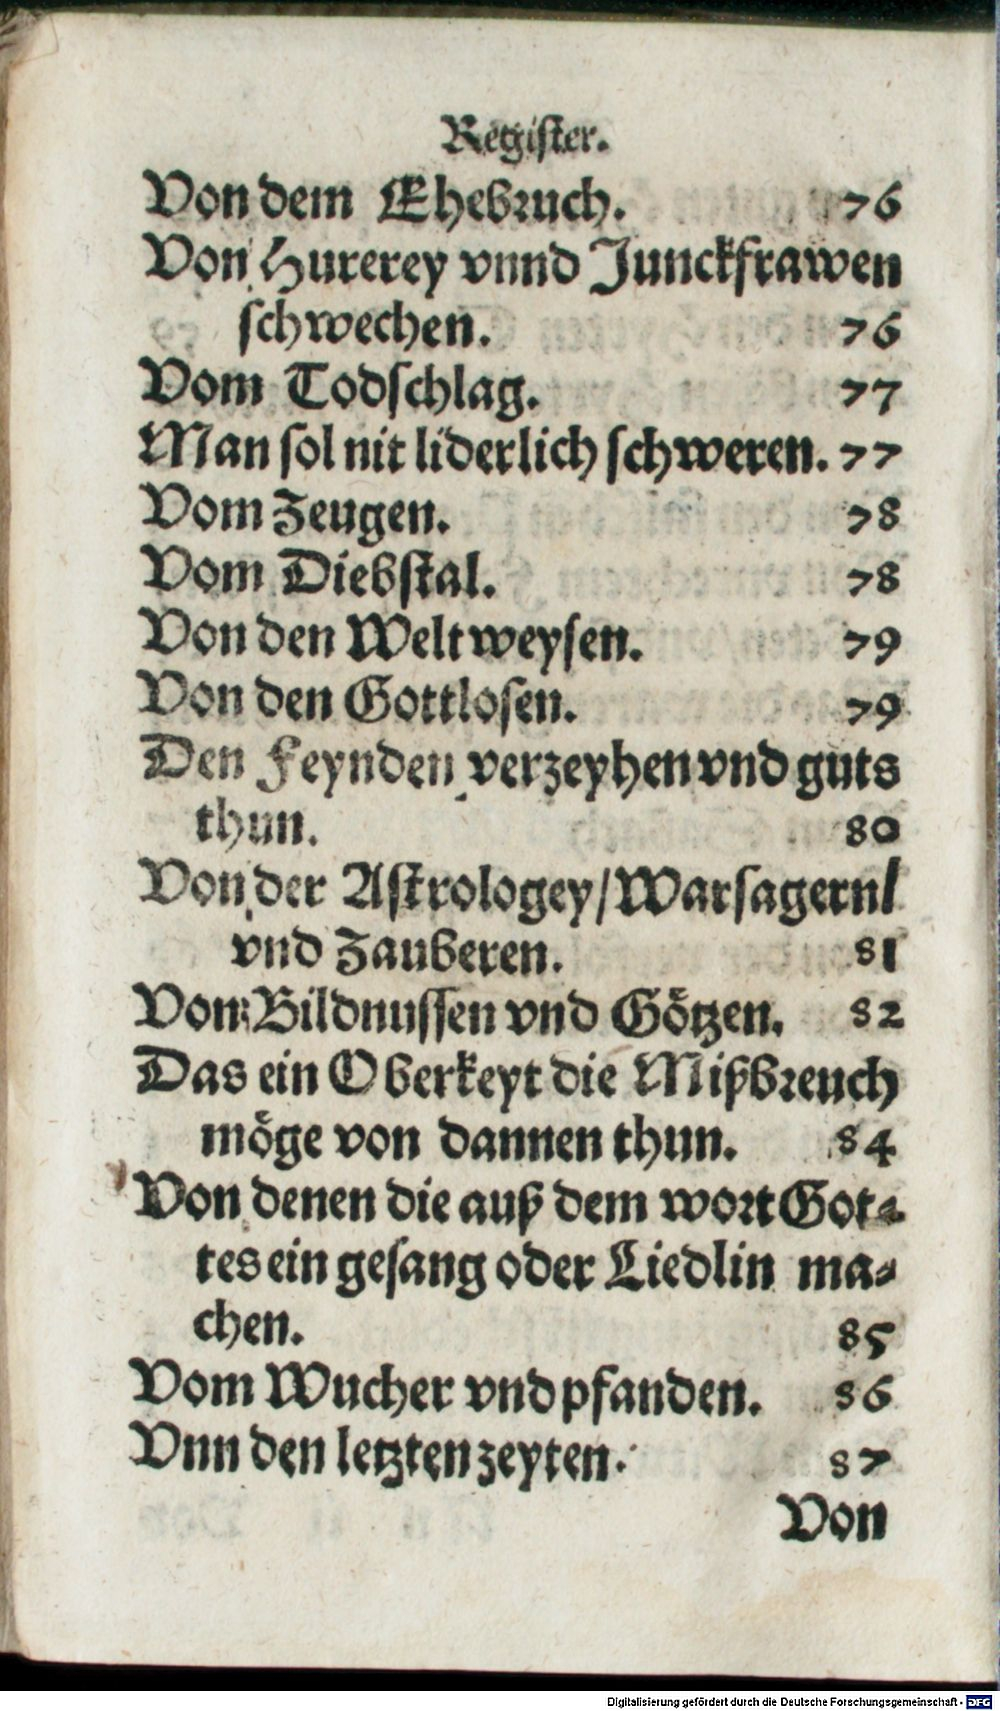 Register.
Von dem Ehebruch. 76
Von Hurerey vnnd Junckfrawen
schwechen. 76
Vom Todschlag. 77
Man sol nit liderlich schweren. 77
Vom Zeugen. 78
Vom Diebstal. 78
Von den Weltweysen. 79
Von den Gottlosen. 79
Den Feynden verzeyhen vnd guts
thun. 80
Von der Astrologey/Warsagern/
vnd Zauberen. 81
Von Bildnussen vnd Götzen. 82
Das ein Oberkeyt die Mißbreuch
möge von dannen thun. 84
Von denen die auß dem wort Got⸗
tes ein gesang oder Liedlin ma⸗
chen. 85
Vom Wucher vnd pfanden. 86
Vnn den letzten zeyten. 87
Von
Digitalisierung gefördert durch die Deutsche Forschungsgemeinschaft - DFG